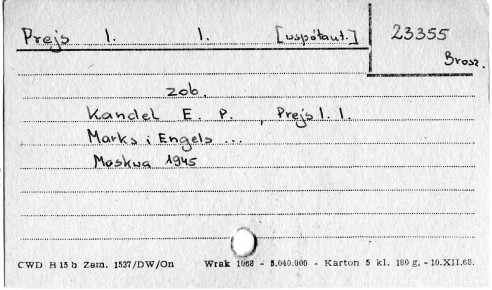 Prejs I. I. [współaut.] 23355
Brosz.
zob.
Kandel E. P., Prejs I. I.
Marks i Engels ...
Moskwa 1945
CWD H 15 b Zam. 1537/DW/On Wrak 1068 - 5.040.000 - Karton 5 kl. 180 g. - 10.XII.68.